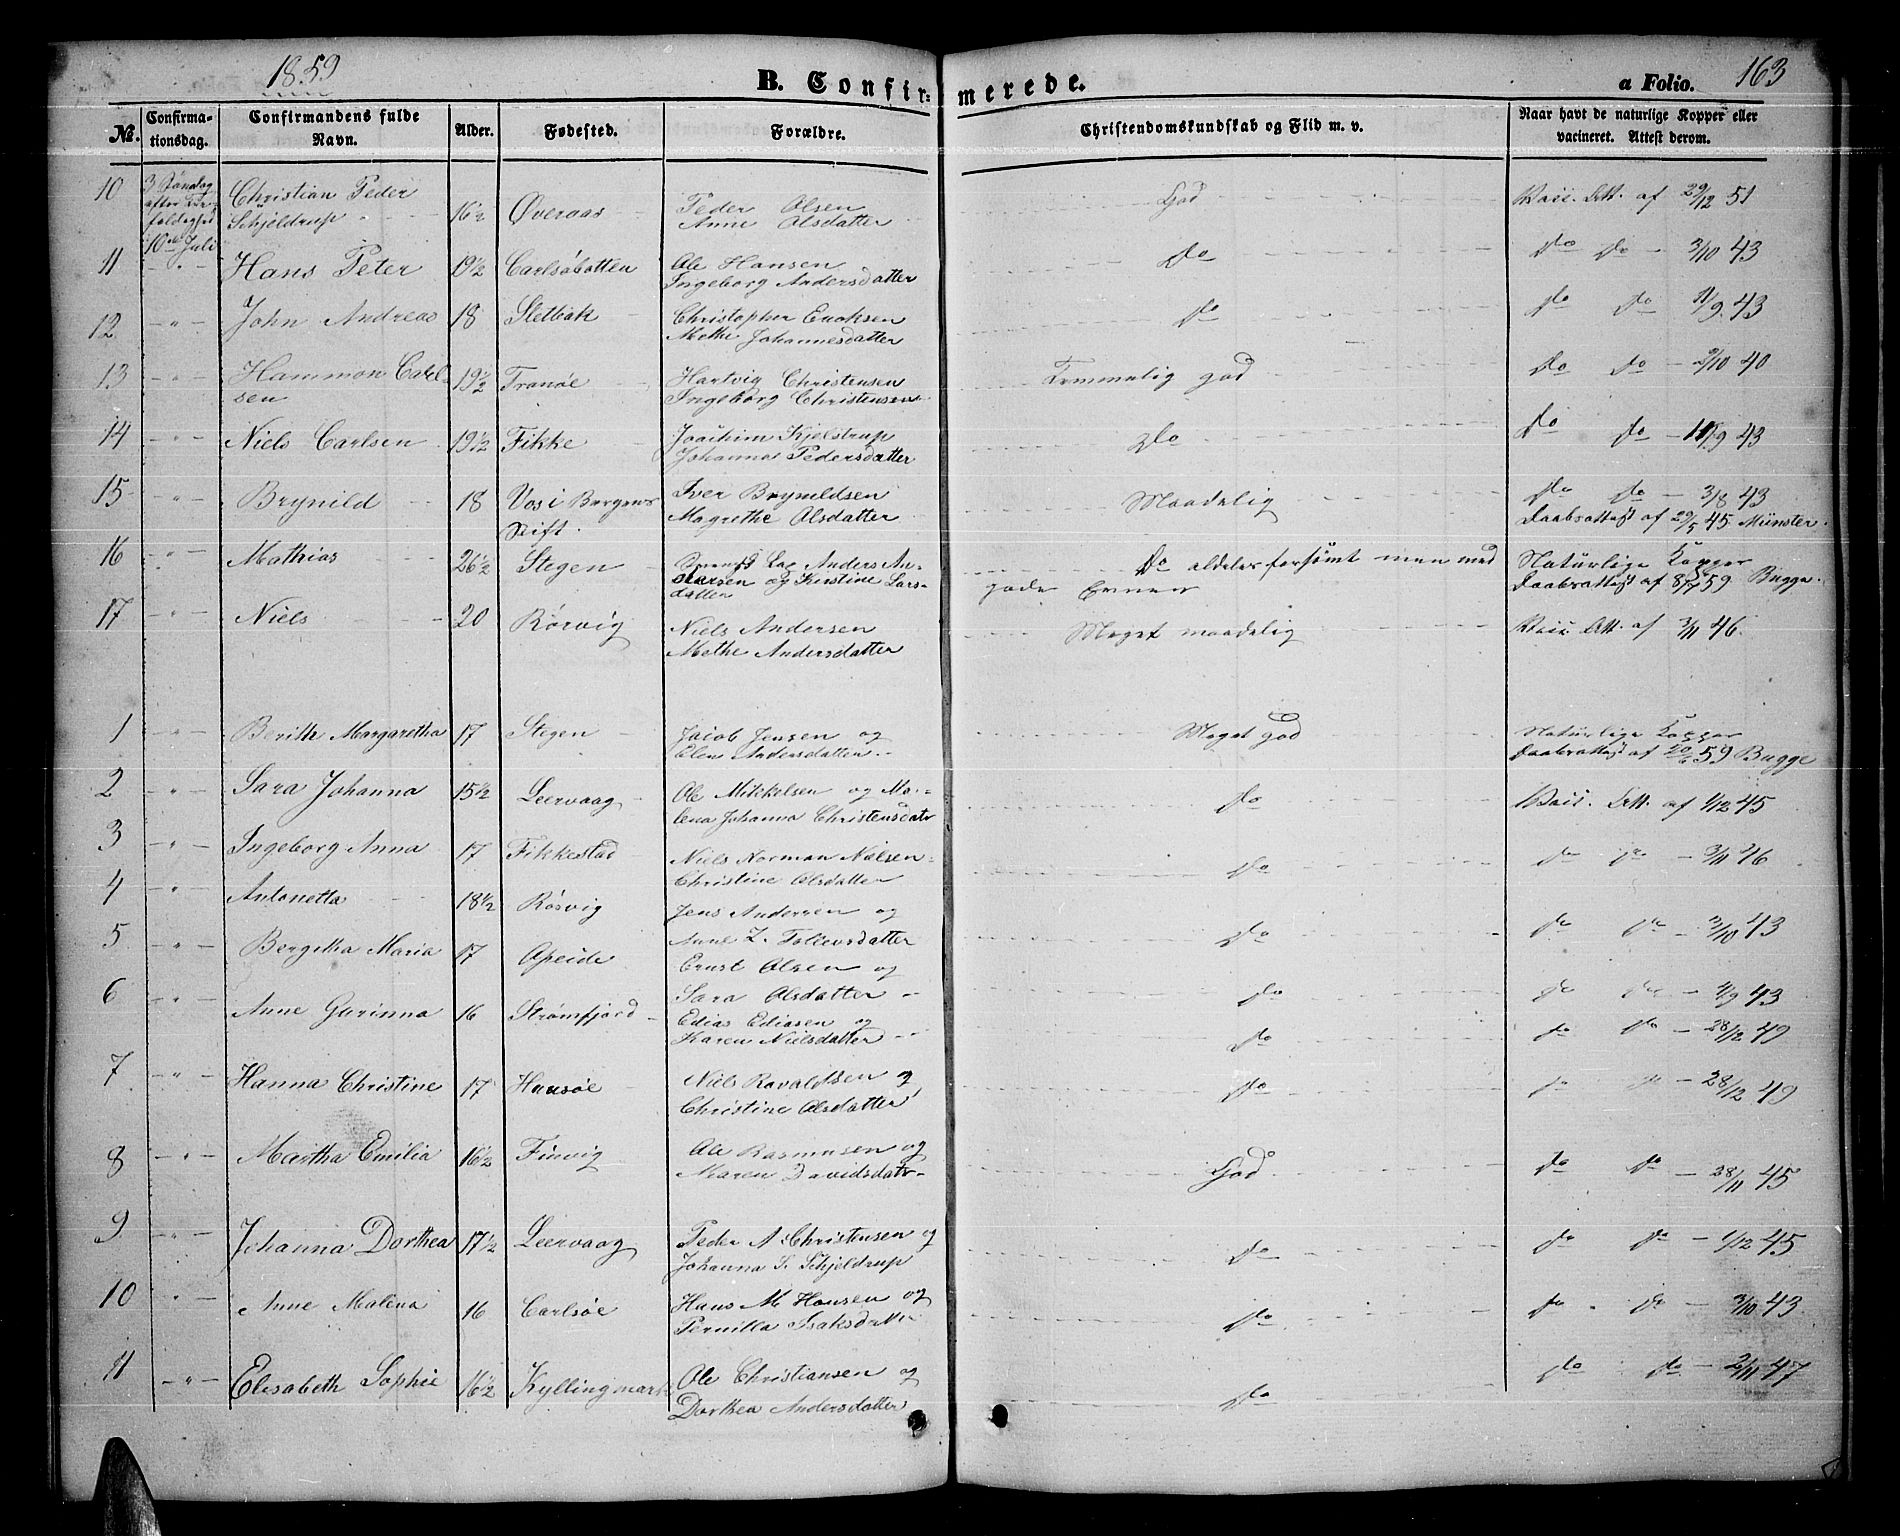 1859 B. Confirmerede. a Folio. 163
No. Confirmationsdag. Confirmandens fulde Navn. Alder. Fødested. Forældre. Christendomskundskab og Flid m. v. Naar havt de naturlige Kopper eller vacineret. Attest derom.
10 3 Søndag efter 10de Juli Christian Peder Schjeldrup 16½ Øveraas Peder Olsen Anne Olsdatter God Vacc. Att. af 29/12 51
11 - " - Hans Peter 19½ Carlsøbotten Ole Hansen Ingeborg Andersdatter Do Do Do - 3/10 43
12 - " - John Andreas 18 Sletbak Christopher Enoksen Methe Johannesdatter Do Do Do 11/9 43
13 - " - Hammon Carlsen 19½ Tranøe Hartvig Christensen Ingeborg Christensen Temmelig god Do Do - 2/10 40
14 - " - Niels Carlsen 19½ Fikke Joachim Kjelstrup Johanna Pedersdatter Do Do Do - 11/9 43
15 - " - Brynild 18 Vos i Bergens Stift. Iver Brynildsen Magrethe Olsdatter Maadelig Do Do - 3/8 43
Daabsattest af 29/5 45 Münster.
16 - " - Mathias 26½ Stegen Lap Anders Andersen og Kirstine Larsdatter Do aldeles forsømt men med gode Evner Naturlige Kopper
Daabsattest af 59 Bugge.
17 - " - Niels 20 Rørvig Niels Andersen Methe Andersdatter Meget maadelig Vacc. Att. af 3/11 46.
1 - " - Berith Margaretha 17 Stegen Jacob Jensen og Elen Andersdatter Meget god Naturlige Kopper
Daabsattest af 20/6 59 Bugge
2 - " - Sara Johanna 15½ Leervaag Ole Mikkelsen og Malena Johanna Christensdatr Do Vacc. Att. af 1/12 45
3 - " - Ingeborg Anna 17 Fikkestad Niels Norman Nielsen Christine Olsdatter Do Do Do - 3/11 46
4 - " - Antonetta 18½ Røsvig Jens Andersen og Anne Z. Tollevsdatter Do Do Do - 3/10 43
5 - " - Bergitha Maria 17 Apeide Ernst Olsen og Sara Olsdatter Do Do Do - 43
6 - " - Anne Gurinna 16 Strømfjord Edias Ediasen og Karen Nielsdatter Do Do Do - 28/12 49
7 - " - Hanna Christine 17 Hansøe Niels Ravaldsen og Christine Olsdatter Do Do Do - 28/12 49
8 - " - Martha Emilia 16½ Finvig Ole Rasmusen og Maren Davidsdatr God Do Do - 28/11 45
9 - " - Johanna Dorthea 17½ Leervaag Peder A Christensen og Johanna S. Schjeldrup Do Do Do - 1/12 45
10 - " - Anne Malena 16 Carlsøe Hans M Hansen og Pernilla Isaksdatter Do Do Do - 3/10 43
11 - " - Elisabeth Sophie 16½ Kyllingmark Ole Christiansen og Dorthea Andersdatter Do Do Do - 2/11 47